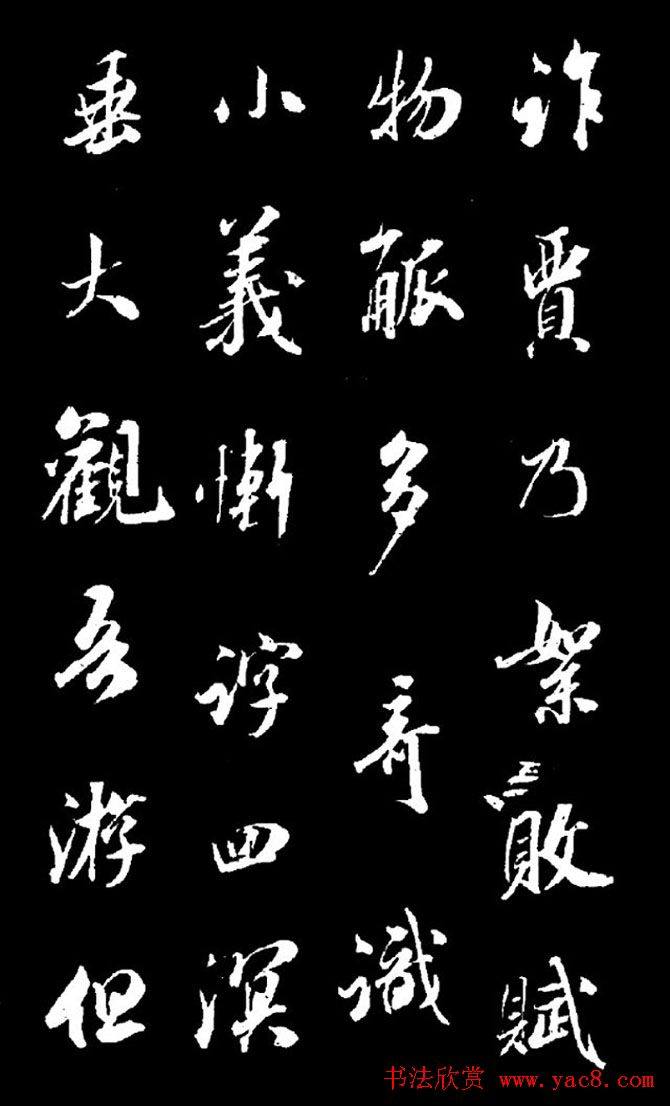 詐賈乃絮敗賦
物多奇識
小義慚四溟
垂大觀吾游但
书法欣赏 www.yac8.com